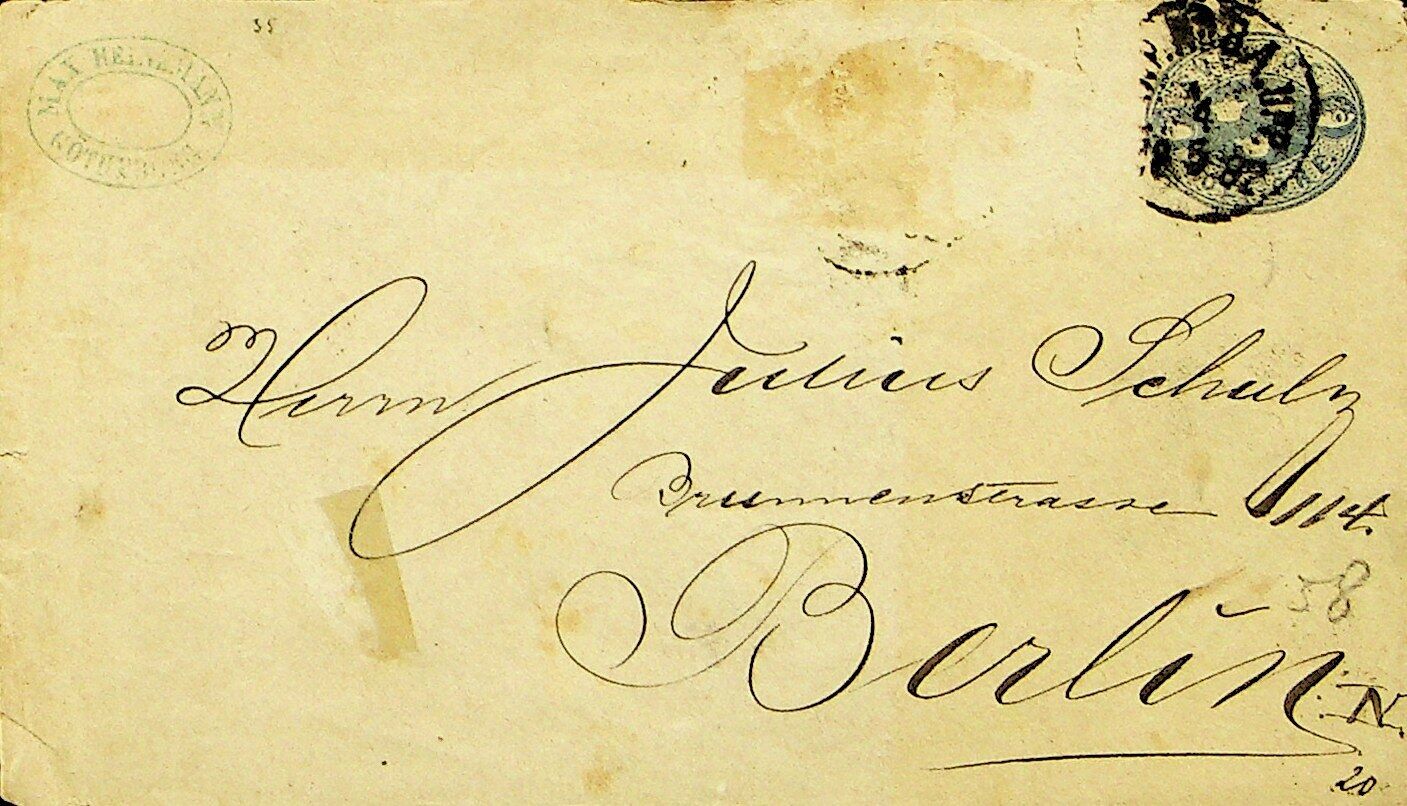 55
MAX
Herrn Julius Schulz
Brunnenstrasse 114.
Berlin
58
N.
20